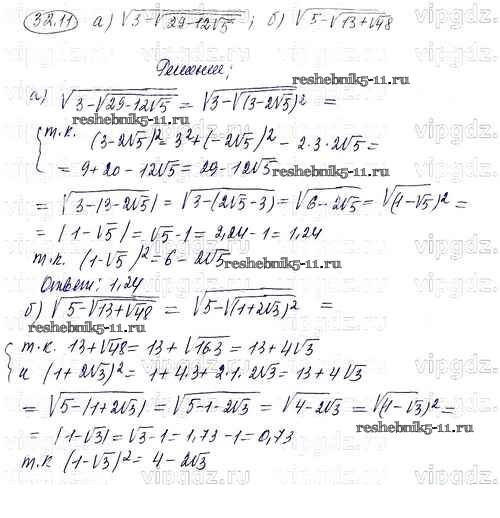 32.11 а) √3-√29-12√5 ; б) √5-√13+√48
Решение;
reshebnik5-11.ru
а) √3-√29-12√5 = √3-√(3-2√5)² =
reshebnik5-11.ru
{ т.к. (3-2√5)² = 3²+(-2√5)² - 2·3·2√5 =
= 9+20-12√5 = 29-12√5
reshebnik5-11.ru
= √3-|3-2√5| = √3-(2√5-3) = √6-2√5 = √(1-√5)² =
= |1-√5| = √5-1 = 2,24-1 = 1,24
т.к. (1-√5)² = 6-2√5
reshebnik5-11.ru
Ответ: 1,24
б) √5-√13+√48 = √5-√(1+2√3)² =
reshebnik5-11.ru
{ т.к. 13+√48 = 13+√16·3 = 13+4√3
и (1+2√3)² = 1+4·3+2·1·2√3 = 13+4√3
= √5-|1+2√3| = √5-1-2√3 = √4-2√3 = √(1-√3)² =
= |1-√3| = √3-1 = 1,73-1 = 0,73
reshebnik5-11.ru
т.к (1-√3)² = 4-2√3
vipgdz.ru